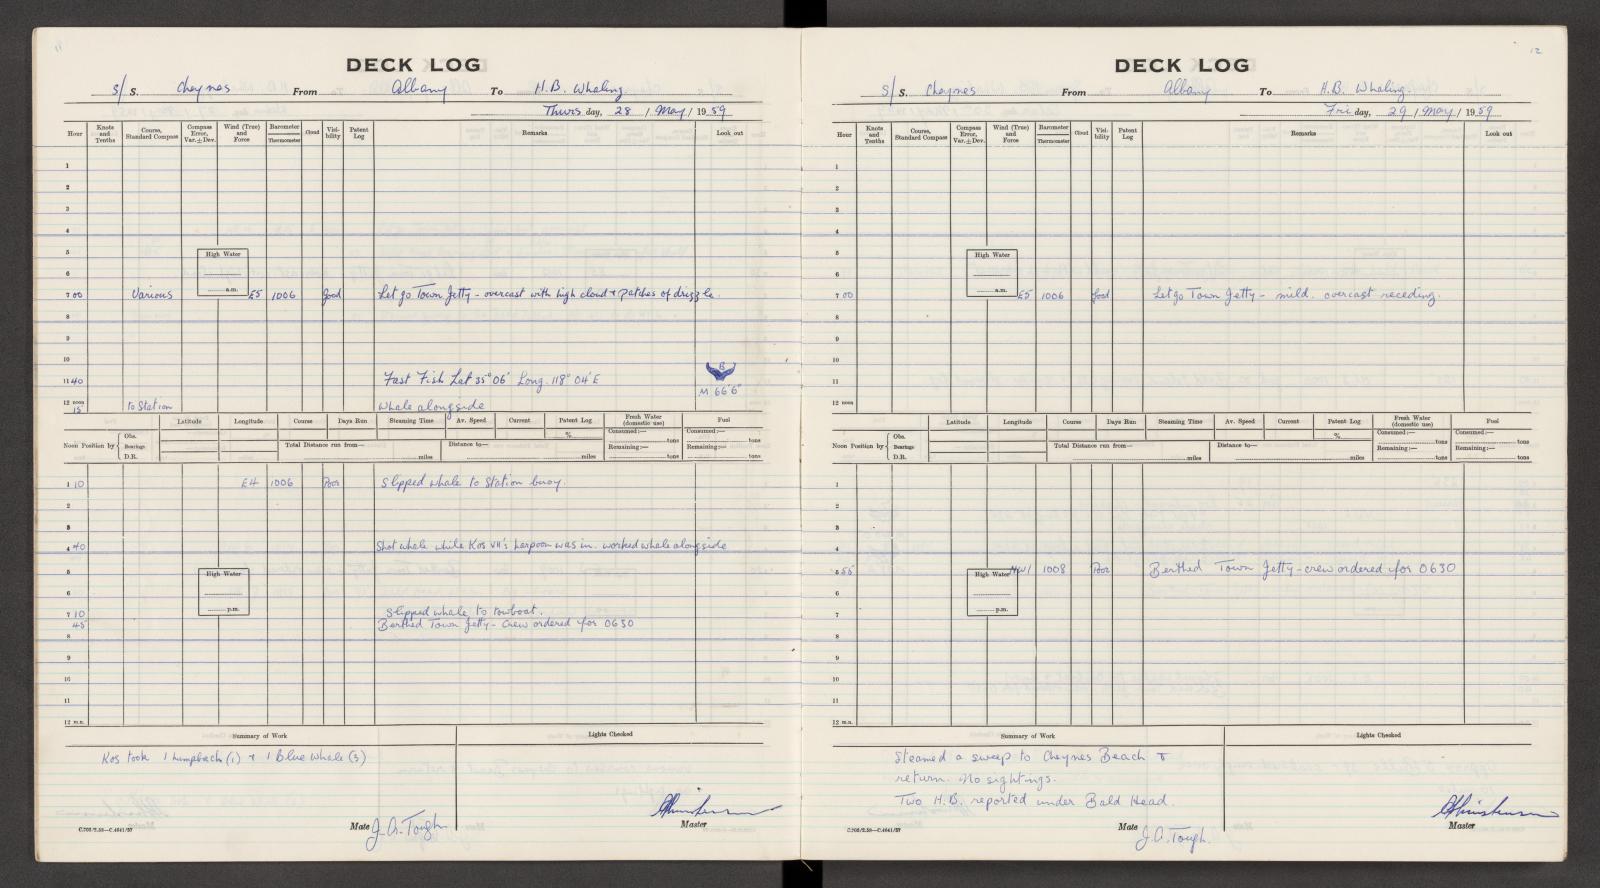 11
DECK LOG
S/ S. Cheynes From Albany To H.B. Whaling
Thurs day, 28 / May / 1959
Hour Knots and Tenths Course, Standard Compass Compass Error, Var. ± Dev. Wind (True) and Force Barometer Thermometer Cloud Visibility Patent Log Remarks Look out
1
2
3
4
5 High Water
6
a.m.
7 00 Various E5 1006 Good Let go Town Jetty - overcast with high cloud + patches of drizzle.
8
9
10
B
11 40 Fast Fish Lat 35° 06' Long. 118° 04' E
M 66'6"
12 noon
15 to Station Whale alongside
Latitude Longitude Course Days Run Steaming Time Av. Speed Current Patent Log Fresh Water (domestic use) Fuel
% Consumed:— tons Consumed:— tons
Noon Position by Obs. Bearings D.R. Total Distance run from— miles Distance to— miles Remaining:— tons Remaining:— tons
1 10 E4 1006 Poor Slipped whale to Station buoy.
2
3
4 40 Shot whale while Kos VII's harpoon was in. worked whale alongside
5 High Water
6
p.m.
7 10 Slipped whale to towboat.
45 Berthed Town Jetty - Crew ordered for 0630
8
9
10
11
12 m.n.
Summary of Work Lights Checked
Kos took 1 humpback (1) + 1 Blue whale (3)
Mate J.A. Tough. Master
C.702/2.58—C.4641/57
12
DECK LOG
S/ S. Cheynes From Albany To H.B. Whaling.
Fri day, 29 / May / 1959
Hour Knots and Tenths Course, Standard Compass Compass Error, Var. ± Dev. Wind (True) and Force Barometer Thermometer Cloud Visibility Patent Log Remarks Look out
1
2
3
4
5 High Water
6
a.m.
7 00 E5 1006 Good Let go Town Jetty - mild. overcast receding.
8
9
10
11
12 noon
Latitude Longitude Course Days Run Steaming Time Av. Speed Current Patent Log Fresh Water (domestic use) Fuel
% Consumed:— tons Consumed:— tons
Noon Position by Obs. Bearings D.R. Total Distance run from— miles Distance to— miles Remaining:— tons Remaining:— tons
1
2
3
4
5 55 High Water NW1 1008 Poor Berthed Town Jetty - crew ordered for 0630
6
p.m.
7
8
9
10
11
12 m.n.
Summary of Work Lights Checked
Steamed a sweep to Cheynes Beach +
return. No sightings.
Two H.B. reported under Bald Head.
Mate J.A. Tough. Master
C.702/2.58—C.4641/57